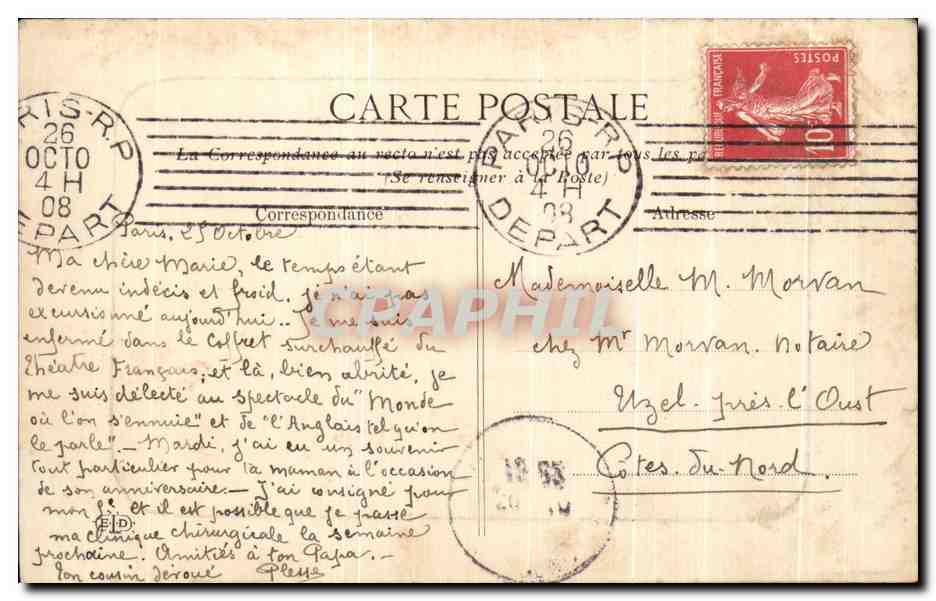 CARTE POSTALE
La Correspondance au recto n'est pas acceptée par tous les
(Se renseigner à la Poste)
Correspondance
Adresse
RIS-R.P
26
OCTO
4 H
08
DEPART
PARIS-R.P
26
OCTO
4 H
08
DEPART
REPUBLIQUE FRANÇAISE
POSTES
10c
Paris, 25 Octobre
Ma chère Marie, le temps étant
devenu indécis et froid, je n'ai pas
excursionné aujourd'hui.. Je me suis
enfermé dans le coffret surchauffé du
théâtre Français, et là, bien abrité, je
me suis délecté au spectacle du "Monde
où l'on s'ennuie" et de "l'Anglais tel qu'on
le parle". — Mardi, j'ai eu un souvenir
tout particulier pour ta maman à l'occasion
de son anniversaire. — J'ai consigné pour
mon et il est possible que je passe
ma clinique chirurgicale la semaine
prochaine. Amitiés à ton Papa. —
Ton cousin dévoué Plesse
ELD
Mademoiselle M. Morvan
chez Mr Morvan. Notaire
Uzel. près. l'Oust
Côtes. du. Nord
CPAPHIL